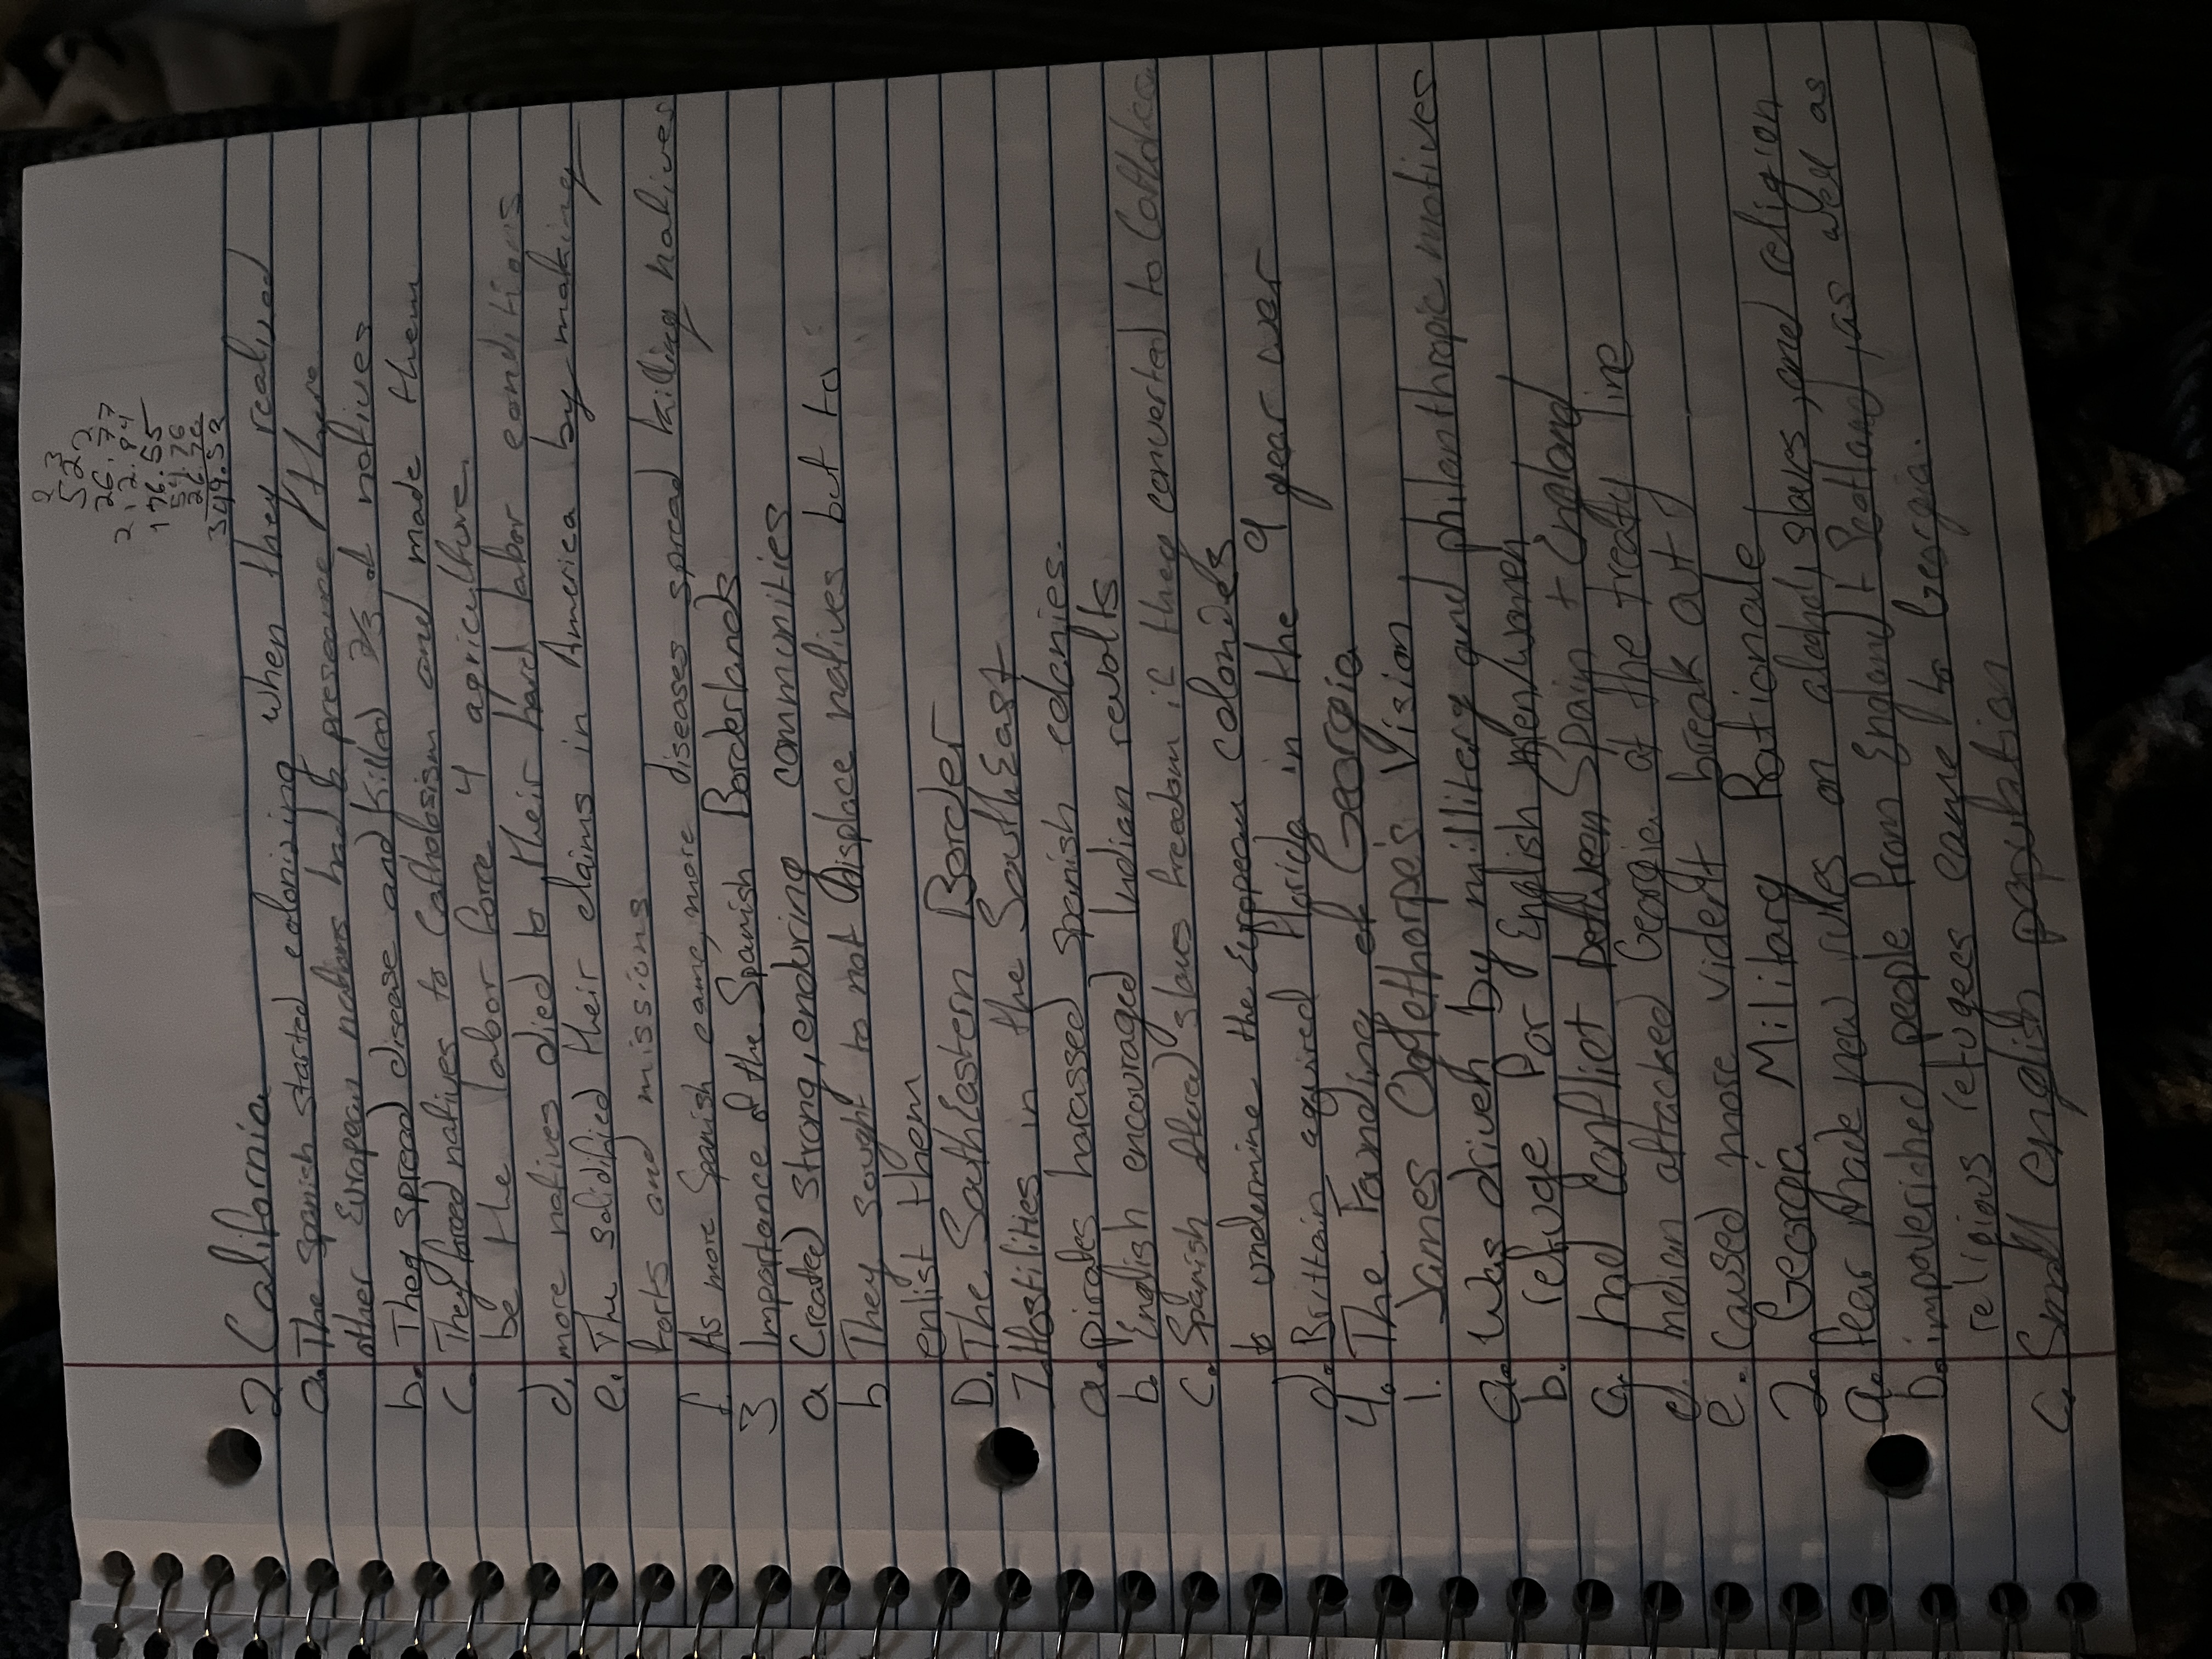 2 3
5 2 2
26.77
2,2.84
176.55
54.76
26.76
349.53
2 California
a. The Spanish started colonizing when they realized
other European nations had presence there
b. They spread disease and killed 2/3 of natives
c. They forced natives to Catholosism and made them
be the labor force 4 agriculture
d. more natives died to their hard labor conditions
e. The solidified their claims in America by making
forts and missions
f. As more Spanish came, more diseases spread killing natives
3 Importance of the Spanish Borderlands
a Created strong, enduring communities
b They sought to not Displace natives but to
enlist them
D. The SouthEastern Border
1. Hostilities in the SouthEast
a. pirates harassed Spanish colonies.
b. English encouraged Indian revolts
c. Spanish offered slaves freedom if they converted to
to undermine the European colonies
d. Brittain aquired Florida in the 9 year war
4. The Founding of Georgia
1. James Oglethorpe's Vision
a. Was driven by millitary and philanthropic motives
b. refuge for English Men/Women
c. had Conflict between Spain + England
d. Indian attacked Georgia at the treaty line
e. Caused more violent break out
2. Georgia Military Rationale
a. fear made new rules on alcohol, slaves, and religion
b. impoverished people from England + Scotland, as well as
religious refugees came to Georgia.
c. Small english population